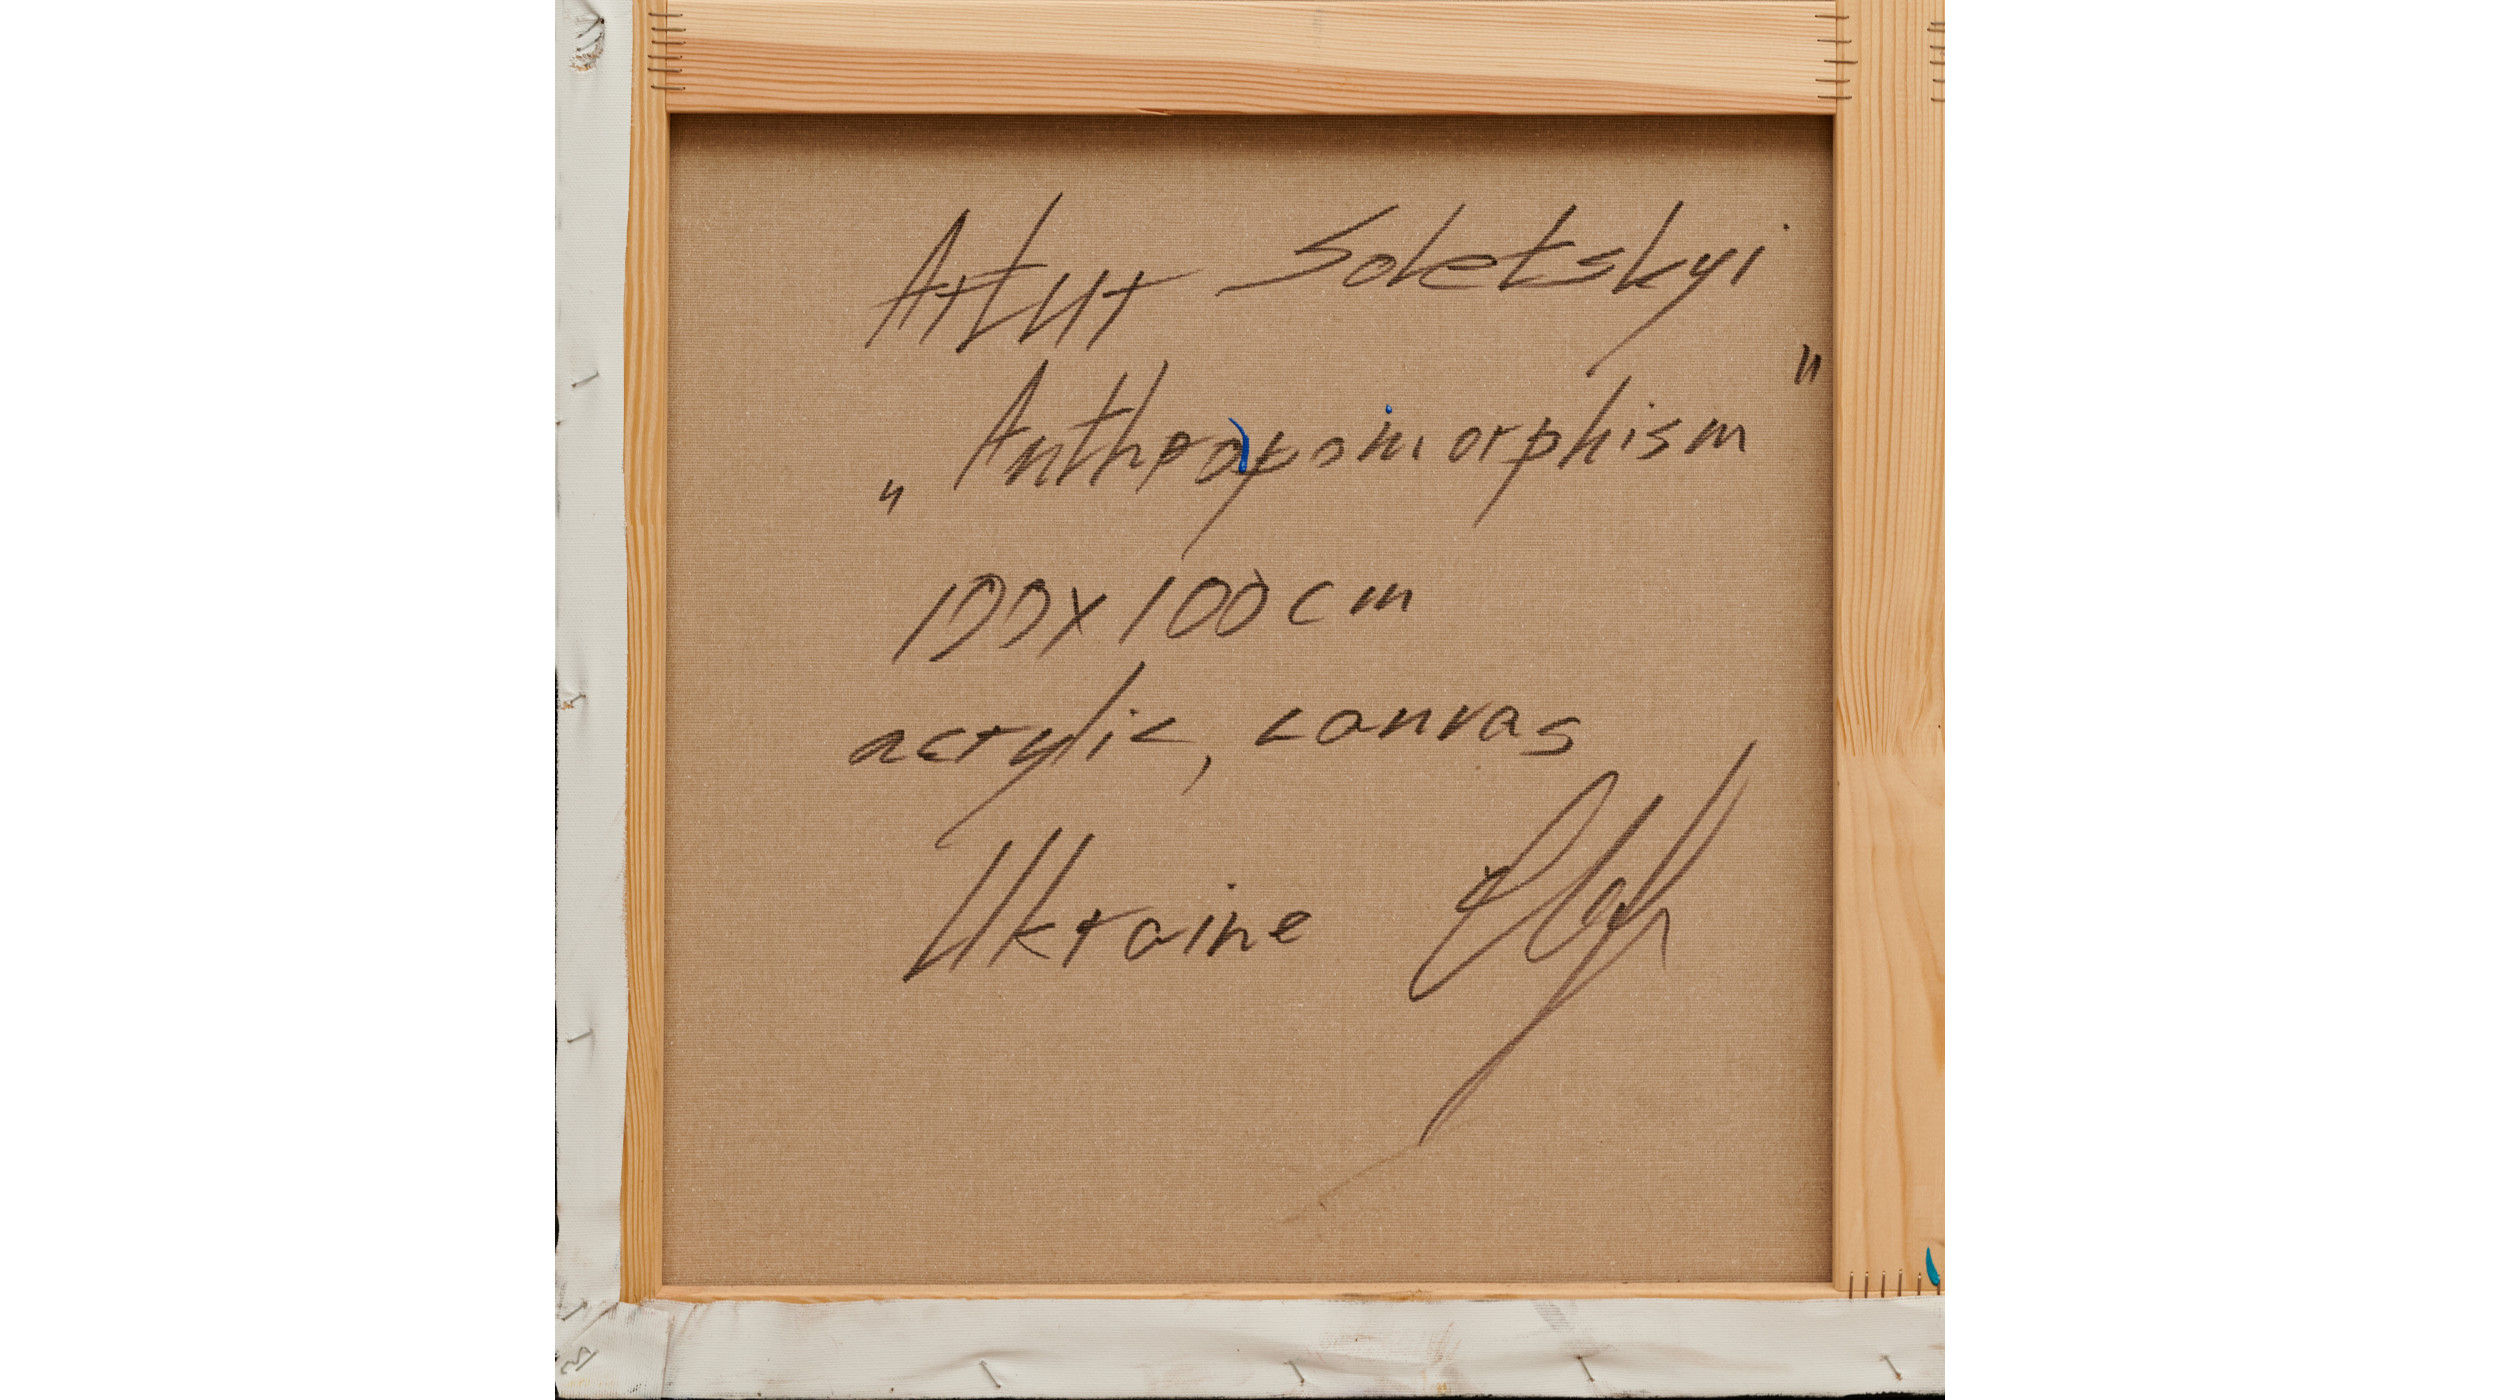 Artur Soletskyi
„Anthropomorphism"
100x100cm
acrylic, canvas
Ukraine